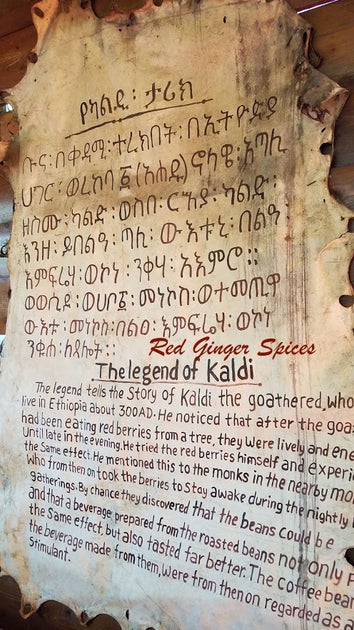 የካልዲ፡ ታሪክ
ቡና፡ በቀዳሚ፡ ተረክበት፡ በኢትዮጵያ
ሀገር፡ ወረከባ፩(አሐዱ) ኖላዊ፡ አጣሊ
ዘስሙ፡ ካልድ፡ ወሶበ፡ ርእያ፡ ካልድ፡
እንዘ፡ ይበልዓ፡ ጣሊ፡ ውእቱኒ፡ በልዓ
እምፍሬሃ፡ ወኮነ፡ ንቀሃ፡ አእምሮ፡፡
ወወሲዶ፡ ወሀቦ፩፡ መነኮስ፡ ወተመጢዋ
ውእቱ፡ መነኮስ፡ በልዐ፡ እምፍሬሃ፡ ወኮነ
ንቁሐ፡ ለጸሎት፡፡
Red Ginger Spices
The legend of Kaldi
The legend tells the Story of Kaldi the goathered, who
live in Ethiopia about 300AD. He noticed that after the goa
had been eating red berries from a tree, they were lively and ene
Until late in the evening. He tried the red berries himself and experi
the Same effect. He mentioned this to the monks in the nearby mo
who from then on took the berries to Stay awake during the nightly
gatherings. By chance they discovered that the beans could be
and that a beverage prepared from the roasted beans not only p
the Same effect, but also tasted far better. The coffee bean
the beverage made from them, were from then on regarded as a
Stimulant.